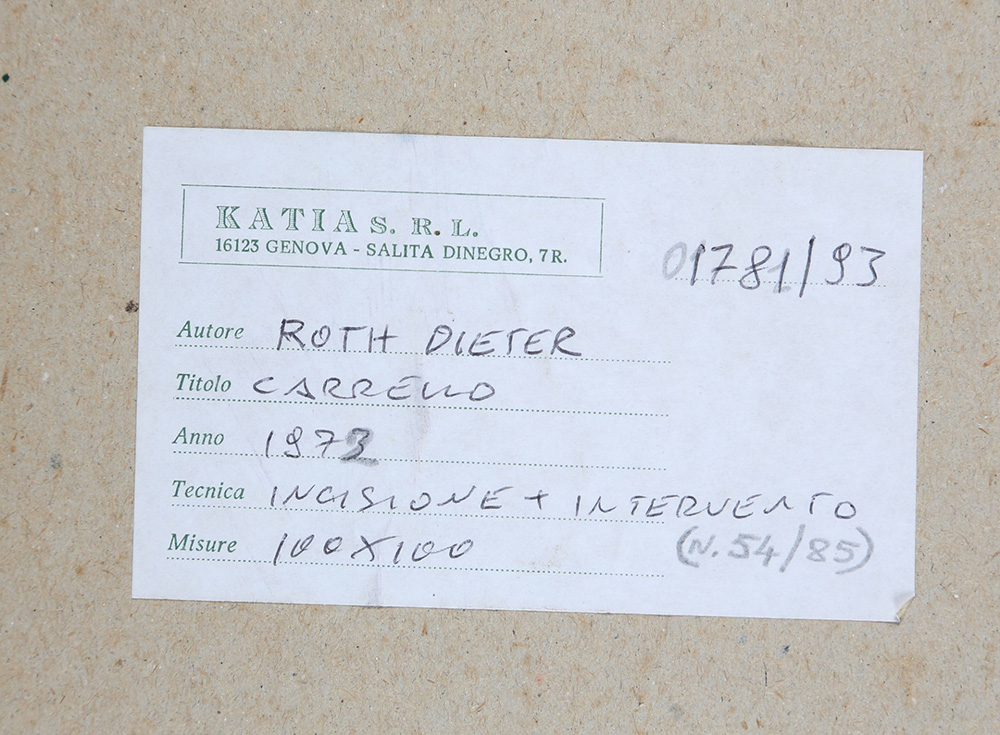 KATIA S. R. L.
16123 GENOVA - SALITA DINEGRO, 7R.
01781/93
Autore ROTH DIETER
Titolo CARRELLO
Anno 1972
Tecnica INCISIONE + INTERVENTO
Misure 100X100
(N. 54/85)